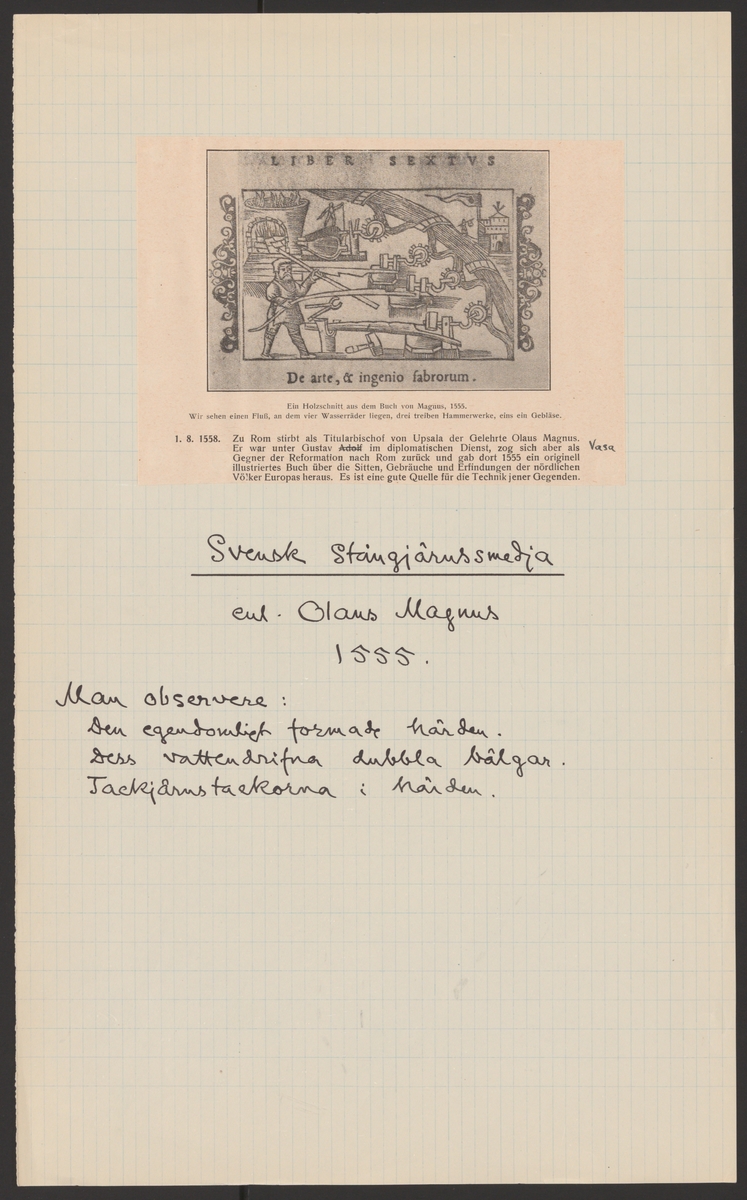 LIBER SEXTVS
De arte, & ingenio fabrorum.
Ein Holzschnitt aus dem Buch von Magnus, 1555.
Wir sehen einen Fluß, an dem vier Wasserräder liegen, drei treiben Hammerwerke, eins ein Gebläse.
1. 8. 1558. Zu Rom stirbt als Titularbischof von Upsala der Gelehrte Olaus Magnus.
Er war unter Gustav Adolf im diplomatischen Dienst, zog sich aber als Vasa
Gegner der Reformation nach Rom zurück und gab dort 1555 ein originell
illustriertes Buch über die Sitten, Gebräuche und Erfindungen der nördlichen
Völker Europas heraus. Es ist eine gute Quelle für die Technik jener Gegenden.
Svensk Stångjärnssmedja
enl. Olaus Magnus
1555.
Man observere :
Den egendomligt formade härden.
Dess vattendrifna dubbla bälgar.
Tackjärnstackorna i härden.